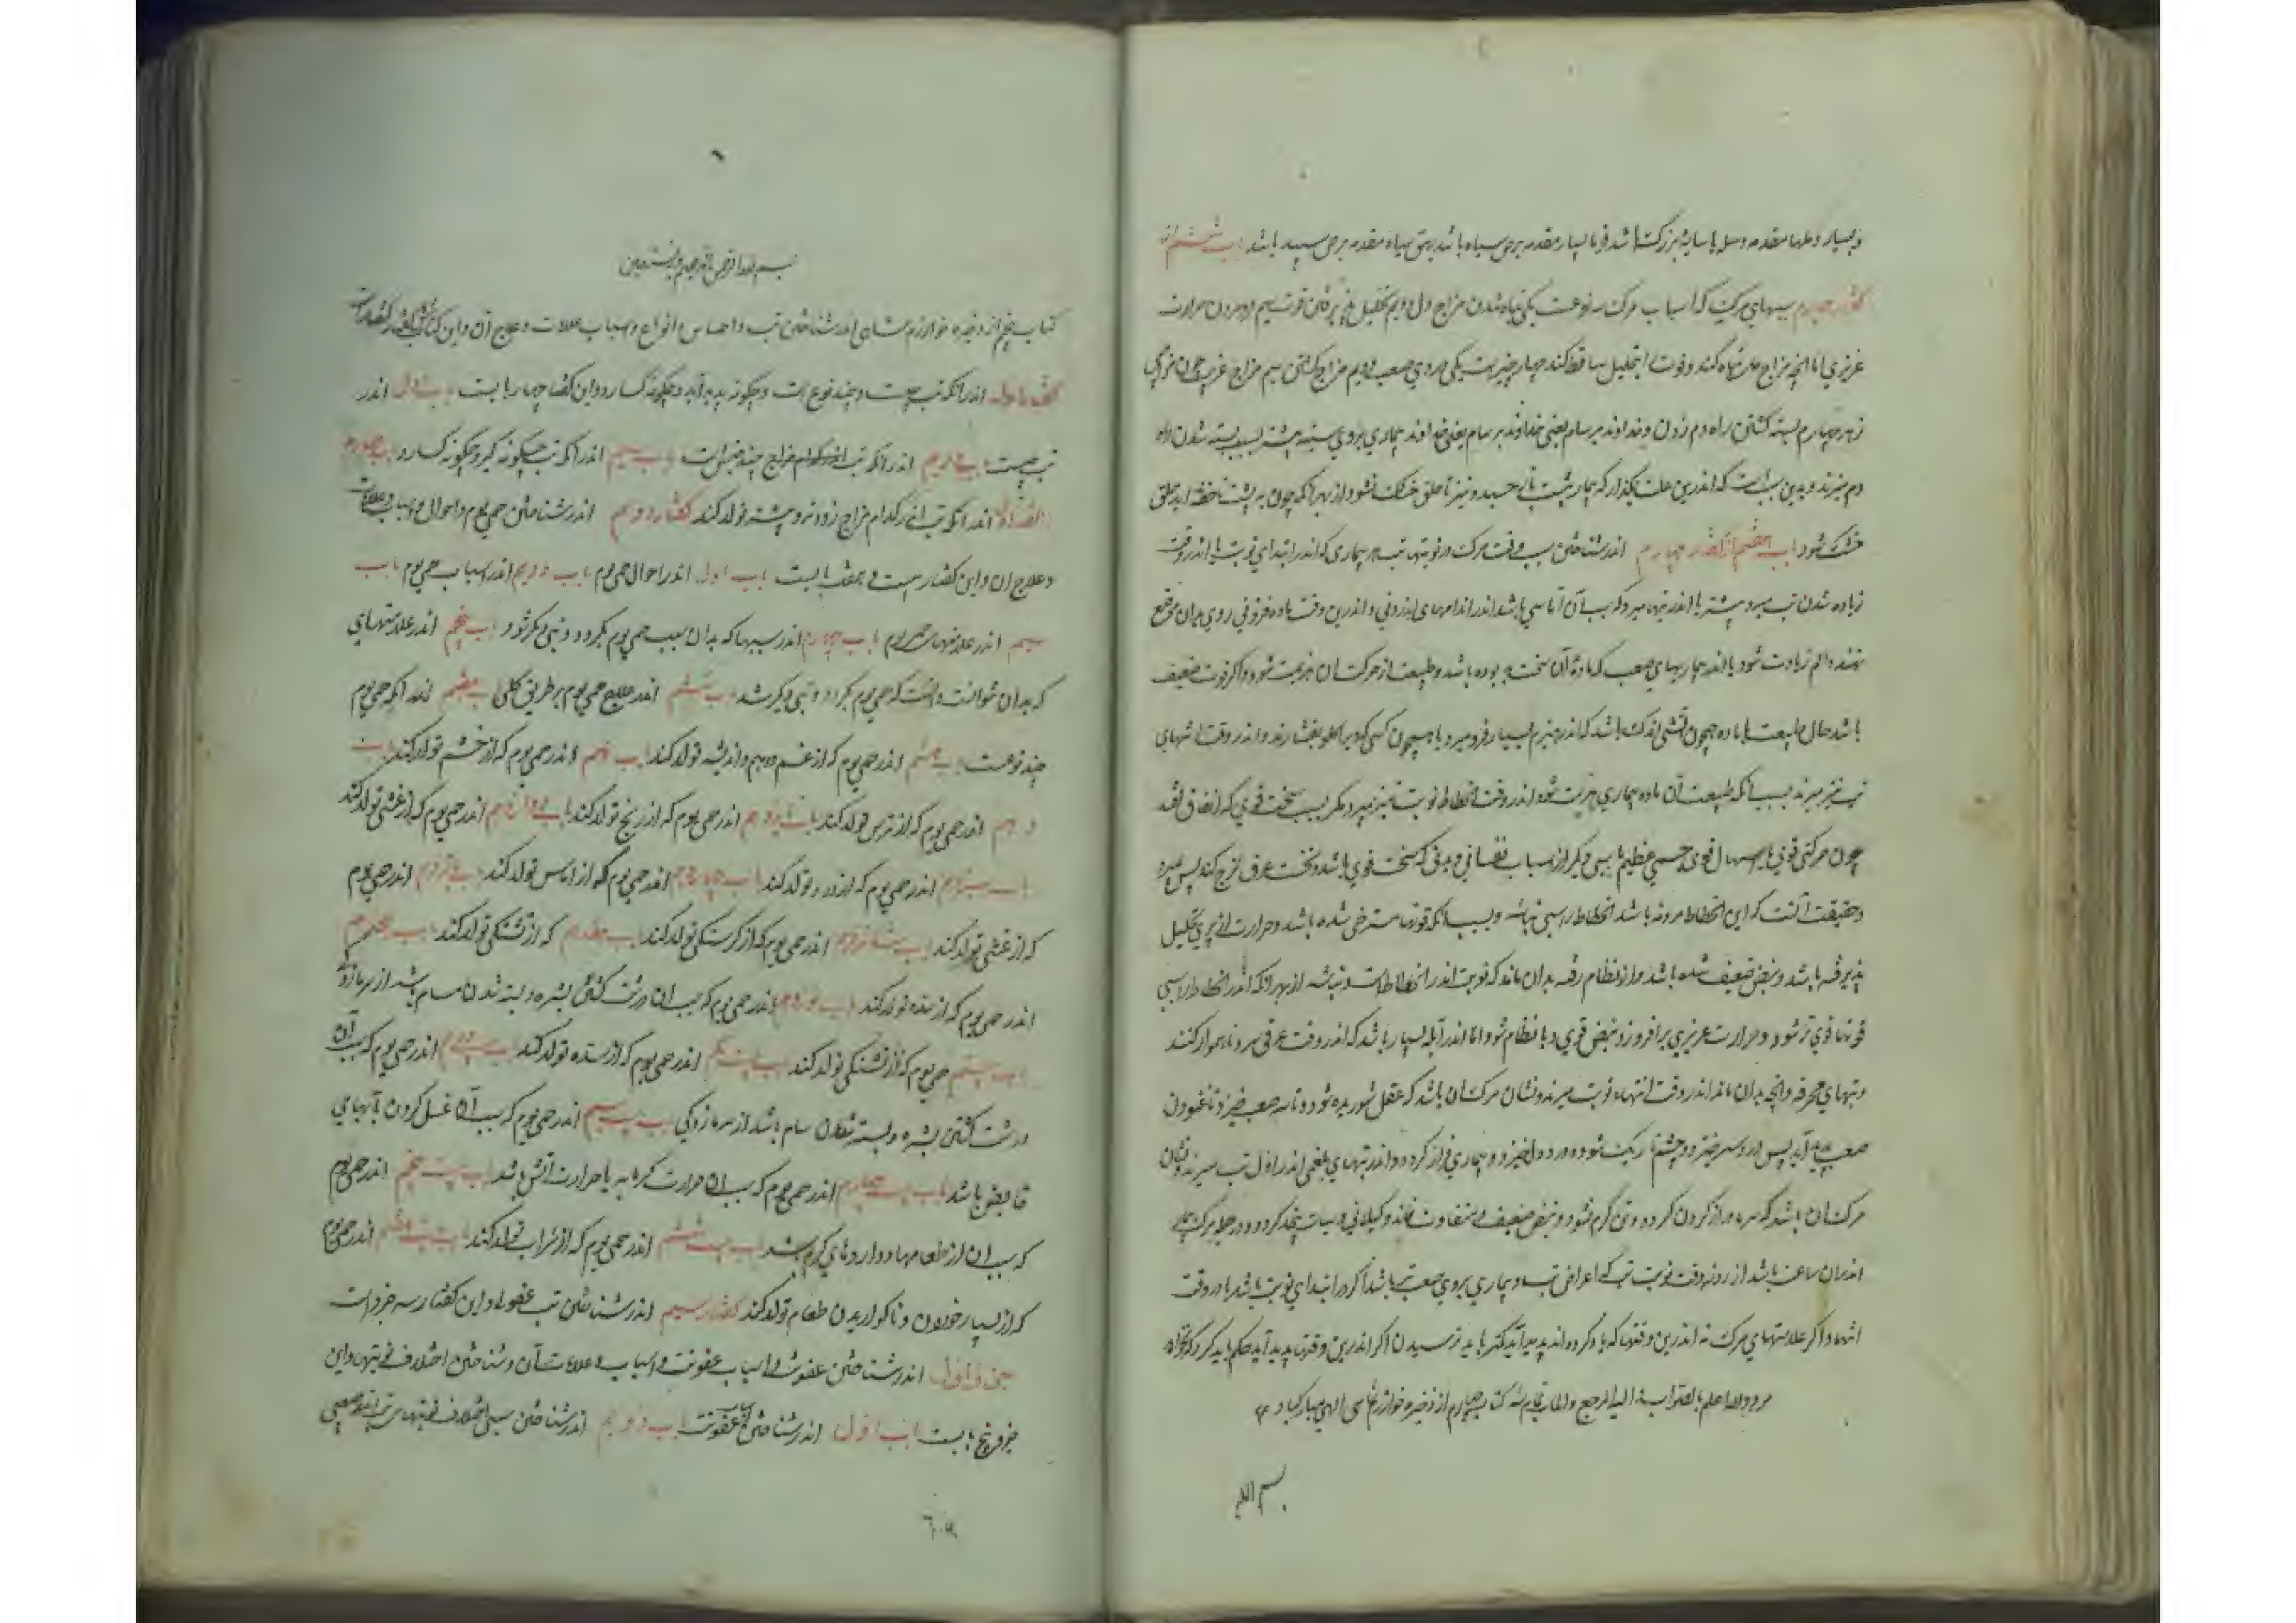 و بسیار و طها مقدمه وسل یا سایه بزرک باشد قوبا بسیار مقدمه برص سیاه باشد بهق سیاه مقدمه برص سپید باشد باب ششم از
کفتار چهارم سببهای مرکست که اسباب مرک سه نوعست یکی تباه شدن مزاج دل دویم تحلیل پذیرفتن قوت سیم فرو مردن حرارت
غریزی اما انچه مزاج دل تباه کند و قوت را بتحلیل ساقط کند چهار چیزست یکی دردی صعب دویم مزاج کشتن سیم مزاج غریب چون مزاج
زهر چهارم بسته کشتن راه دم زدن و خداوند برسام یعنی خداوند برسام یعنی خداوند بیماری بروی سینه بیشتر بسبب بسته شدن راه
دم میزند و بدین سبب است که اندرین علت نکذارند که بیمار بپشت باز خسبد و نیز تا حلق خشک نشود از بهر آنکه چون به پشت باخفته آید حلق
خشک شود باب هفتم از کفتار چهارم اندر شناختن سبب وقت مرک در نوبتها تب هر بیماری که اندر ابتدای نوبت یا اندر وقت
زیاده شدن تب میرد بیشتر یا اندر تبها میرد که سبب آن آماسی باشد اندر اندامهای اندرونی و اندرین وقت ماده فزونی روی بدان موضع
نهند و الم زیادت شود یا اندر بیماریهای صعب که ماده آن سخت بد بوده باشد و طبیعت از حرکت ان هزیمت شود و اکر قوت ضعیف
باشد حال طبیعت با ماده همچون آتشی اندک باشد که اندر هیزم بسیار فرو میرد یا همچون کسی که ویرا کلو بفشارند و اندر وقت انتهای
تب نیز میرند بسبب انکه طبیعت از ماده بیماری هزیمت شود و اندر وقت انحطاط نوبت نیز میرد مکر بسبب سخت قوی که اتفاق افتد
چون حرکتی قوی یا اسهال قوی حسی عظیم یا سببی دیکر از اسباب نفسانی و بدنی که سخت قوی باشد و نخست عرق لزج کند پس میرد
و حقیقت آنست که این انحطاط مردنه باشد انحطاط راستی نباشد و بسبب انکه قوتها مسترخی شده باشد و حرارت غریزی تحلیل
پذیرفته باشد و نبض ضعیف شده باشد و از نظام رفته بدان ماند که نوبت اندر انحطاط است و نباشد از بهر انکه اندر انحطاط راستی
قوتها قوی تر شود و حرارت غریزی برافروزد و نبض قوی و با نظام شود اما اندر آبله بسیار باشد که اندر وقت عرقی سرد ناهموار کنند
و تبهای محرقه و انچه بدان ماند اندر وقت انتهاء نوبت میرند و نشان مرک ان باشد که عقل شوریده شود و تاسه صعب خیزد و ناغنودن
صعب پدید آید پس درد سر خیزد و چشم تاریک شود و درد دل خیزد و بیماری فراز کردد و اندر تبهای بلغمی اندر اول تب میرند و نشان
مرک ان باشد که سرما دراز کردن کردد و تن کرم نشود و نبض ضعیف و متفاوت شود و کسلانی و سبات پیدا کردد و در جمله مرک بیمار
اندران ساعت باشد از روز و وقت نوبت تب که اعراض تب و بیماری بروی صعبتر باشد اکر در ابتدای نوبت باشد یا در وقت
انتها و اکر علامتهای مرک نه اندرین وقتها که یاد کرده اند پدید آید کمتر باید ترسیدن اکر اندرین وقتها پدید آید حکم باید کرد که بخواهد
مرد والله اعلم بالصواب الیه المرجع والمآب تمام شد کتاب چهارم از ذخیره خوارزمشاهی الهی مبارک باد
بسم الله
بسم الله الرحمن الرحیم و به نستعین
کتاب پنجم از ذخیره خوارزم شاهی اندر شناختن تب و اجناس و انواع و اسباب علامات و علاج آن و این کتاب شش کفتارست
کفتار اول اندر آنکه تب چیست و چند نوع است و چکونه پدید آید و چکونه کسارد و این کفتار چهار بابست باب اول اندر
تب چیست باب دویم اندر آنکه تب از کدام مزاج چند جنس است باب سیم اندر آنکه تب چکونه کیرد و چکونه کسارد باب چهارم
اندر آنکه تب اندر کدام مزاج زودتر و بیشتر تولد کند کفتار دویم اندر شناختن حمی یوم و احوال و اسباب و علامات
و علاج ان و این کفتار بیست و هفت بابست باب اول اندر احوال حمی یوم باب دویم اندر اسباب حمی یوم باب
سیم اندر علامتهای حمی یوم باب چهارم اندر سببها که بدان سبب حمی یوم بکردد و تبی دیکر شود باب پنجم اندر علامتهای
که بدان بتوان دانست که حمی یوم بکردد و تبی دیکر شد باب ششم اندر علاج حمی یوم بطریق کلی باب هفتم اندر آنکه حمی یوم
چند نوعست باب هشتم اندر حمی یوم که از غم و هم و اندیشه تولد کند باب نهم اندر حمی یوم که از خشم تولد کند باب
دهم اندر حمی یوم که از ترس تولد کند باب یازدهم اندر حمی یوم که از رنج تولد کند باب دوازدهم اندر حمی یوم که از غشی تولد کند
باب سیزدهم اندر حمی یوم که از درد تولد کند باب چهاردهم اندر حمی یوم که از اماس تولد کند باب پانزدهم اندر حمی یوم
که از غشی تولد کند باب شانزدهم اندر حمی یوم که از کرسنکی تولد کند باب هفدهم که از تشنکی تولد کند باب هجدهم
اندر حمی یوم که از سده تولد کند باب نوزدهم اندر حمی یوم که سبب ان درشت کشتن بشره و بسته شدن مسام باشد از سرمازدکی
باب بیستم حمی یوم که از تشنکی تولد کند باب بیست یکم اندر حمی یوم که از سده تولد کند باب بیست دویم اندر حمی یوم که سبب آن
درشت کشتن بشره و بسته شدن مسام باشد از سرمازدکی باب بیست سیم اندر حمی یوم که سبب آن غسل کردن بآبهای
قابض باشد باب بیست چهارم اندر حمی یوم که سبب ان حرارت کرمابه یا حرارت آتش باشد باب بیست پنجم اندر حمی یوم
که سبب ان از طعامها و داروهای کرم باشد باب بیست ششم اندر حمی یوم که از شراب تولد کند باب بیست هفتم اندر حمی یوم
که از بسیار خوردن و ناکواریدن طعام تولد کند کفتار سیم اندر شناختن تب عفونی و این کفتار سه جزو است
جزو اول اندر شناختن عفونت و اسباب عفونت و اسباب و علامات آن و شناختن اختلاف نوبتها و این
جزو پنج بابست باب اول اندر شناختن اسباب عفونت باب دویم اندر شناختن سبب اختلاف نوبتهای تب